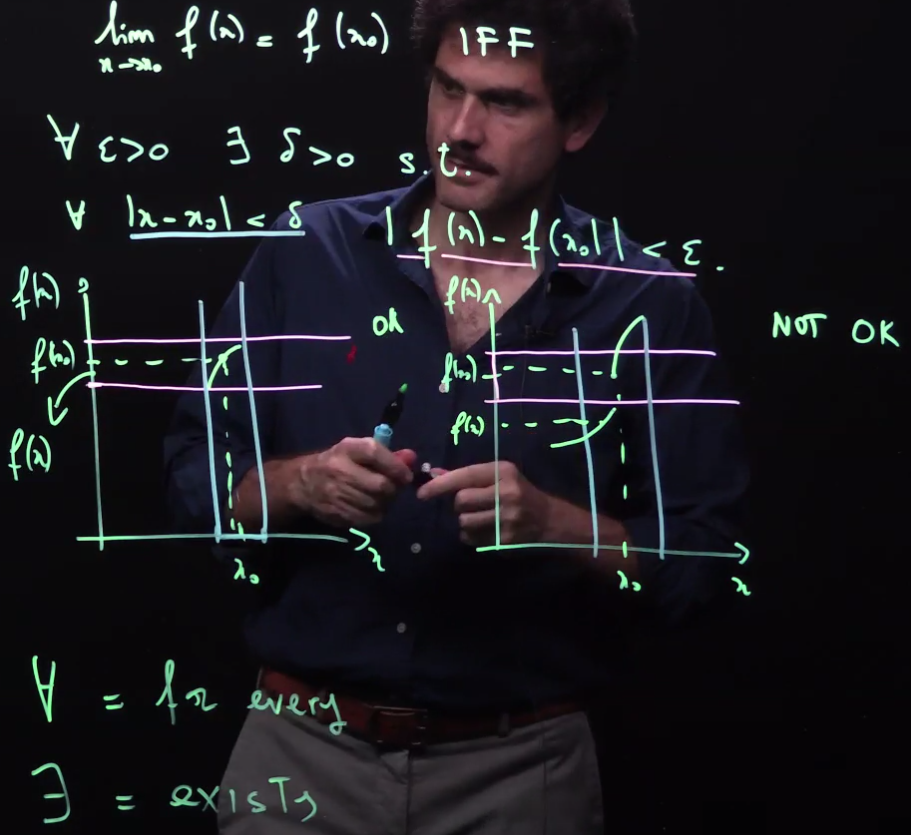 lim f(x) = f(x₀) IFF
x→x₀
∀ ε>0 ∃ δ>0 s.t.
∀ |x-x₀| < δ |f(x)-f(x₀)| < ε.
f(x)
f(x₀)
f(x)
OK
x₀
x
f(x)
f(x₀)
f(x)
NOT OK
x₀
x
∀ = for every
∃ = exists